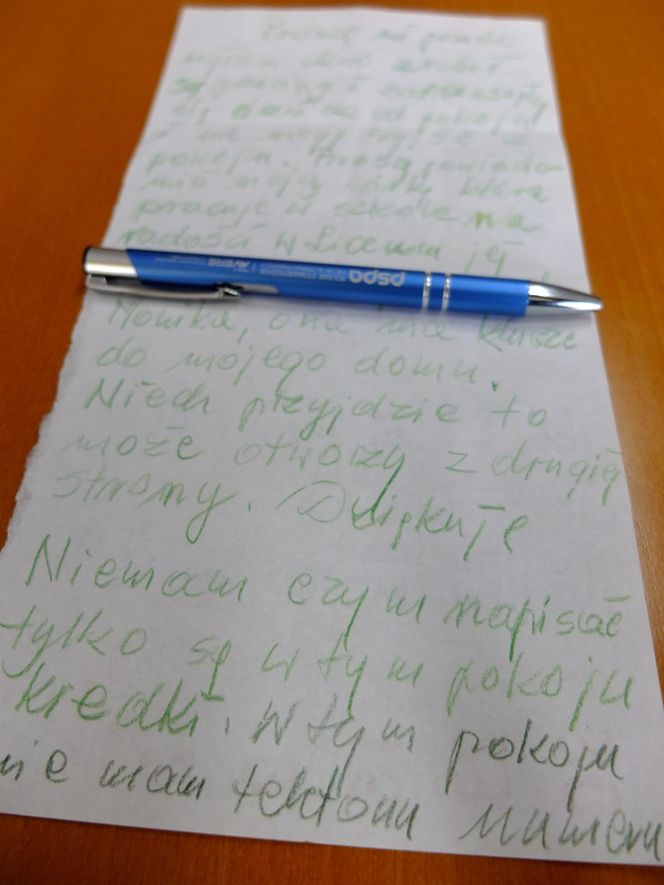 Proszę mi pomóc
się drzwi od pokoju
i nie mogę wyjść z
pokoju. Proszę powiado
mić moją córkę która
pracuje w szkole na
radość w Liceum jej
pspa
AVERE
Monika, ona ma klucze
do mojego domu.
Niech przyjdzie to
może otworzy z drugiej
strony. Dziękuję
Niemam czym napisać
tylko są w tym pokoju
kredki. W tym pokoju
nie mam telefonu numeru